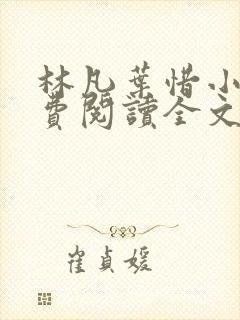 林凡葉惜小
費閱讀全文
崔貞媛